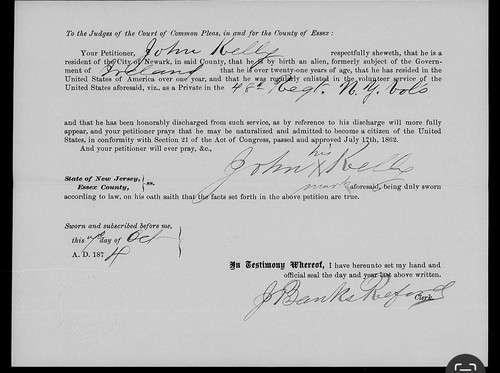 To the Judges of the Court of Common Pleas, in and for the County of Essex:
Your Petitioner, John Kelly respectfully sheweth, that he is a
resident of the City of Newark, in said County, that he is by birth an alien, formerly subject of the Govern-
ment of Ireland that he is over twenty-one years of age, that he has resided in
the United States of America over one year, and that he was regularly enlisted in the volunteer service of the
United States aforesaid, viz., as a Private in the 48th Regt. N. Y. Vols
and that he has been honorably discharged from such service, as by reference to his discharge will more fully
appear, and your petitioner prays that he may be naturalized and admitted to become a citizen of the United
States, in conformity with Section 21 of the Act of Congress, passed and approved July 17th, 1862.
And your petitioner will ever pray, &c.,
his
John X Kelly
mark
State of New Jersey,
Essex County, } ss.
aforesaid, being duly sworn
according to law, on his oath saith that the facts set forth in the above petition are true.
Sworn and subscribed before me,
this day of Oct
A. D. 187 4
In Testimony Whereof, I have hereunto set my hand and
official seal the day and year last above written.
J Banks Reford
Clerk.